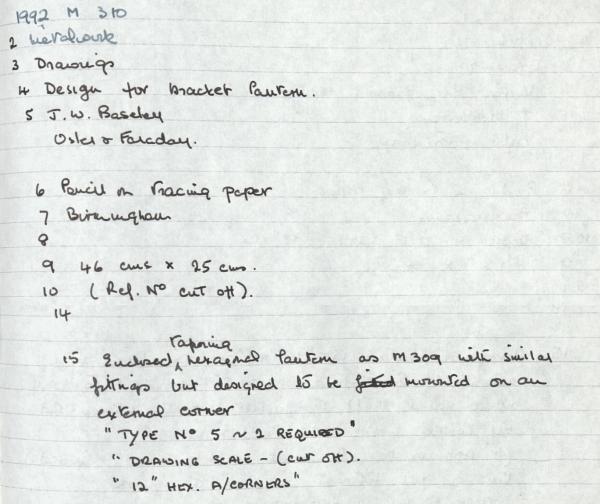 1992 M 310
2 Metalwork
3 Drawings
4 Design for bracket lantern.
5 J.W. Baseley
Osler & Faraday.
6 Pencil on tracing paper
7 Birmingham
8
9 46 cms x 25 cms.
10 (Ref. No cut off).
14
tapering
15 Enclosed hexagonal lantern as M309 with similar
fittings but designed to be fitted mounted on an
external corner
"TYPE No 5 ~ 2 REQUIRED"
"DRAWING SCALE - (cut off).
"12" HEX. A/CORNERS"